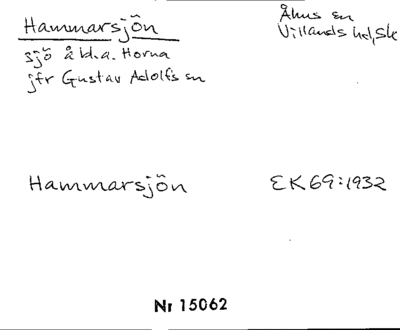 Hammarsjön
Åhus sn
Villands hd, Sk
sjö å bl.a. Horna
jfr Gustav Adolfs sn
Hammarsjön
EK69:1932
Nr 15062